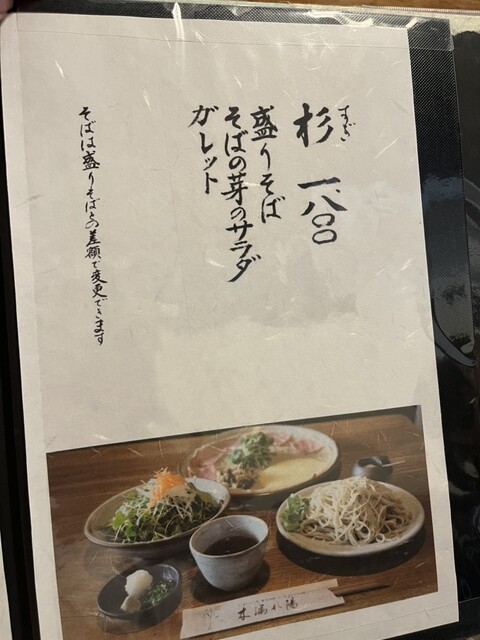 すぎ
杉 一、八〇〇
盛りそば
そばの芽のサラダ
ガレット
そばは盛りそばとの差額で変更できます
木漏れ陽